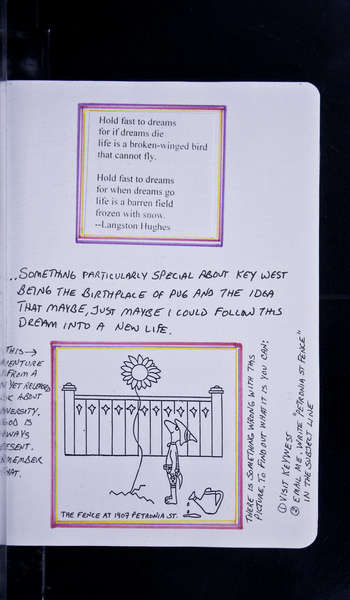 Hold fast to dreams
for if dreams die
life is a broken-winged bird
that cannot fly.
Hold fast to dreams
for when dreams go
life is a barren field
frozen with snow.
--Langston Hughes
..SOMETHING PARTICULARLY SPECIAL ABOUT KEY WEST
BEING THE BIRTHPLACE OF PUG AND THE IDEA
THAT MAYBE, JUST MAYBE I COULD FOLLOW THIS
DREAM INTO A NEW LIFE.
THIS →
FROM A
YET RELEASED
ABOUT
GOD IS
THE FENCE AT 1907 PETRONIA ST.
THERE IS SOMETHING WRONG WITH THIS
PICTURE. TO FIND OUT WHAT IT IS YOU CAN:
① VISIT KEYWEST
② EMAIL ME. WRITE "PETRONIA ST FENCE"
IN THE SUBJECT LINE